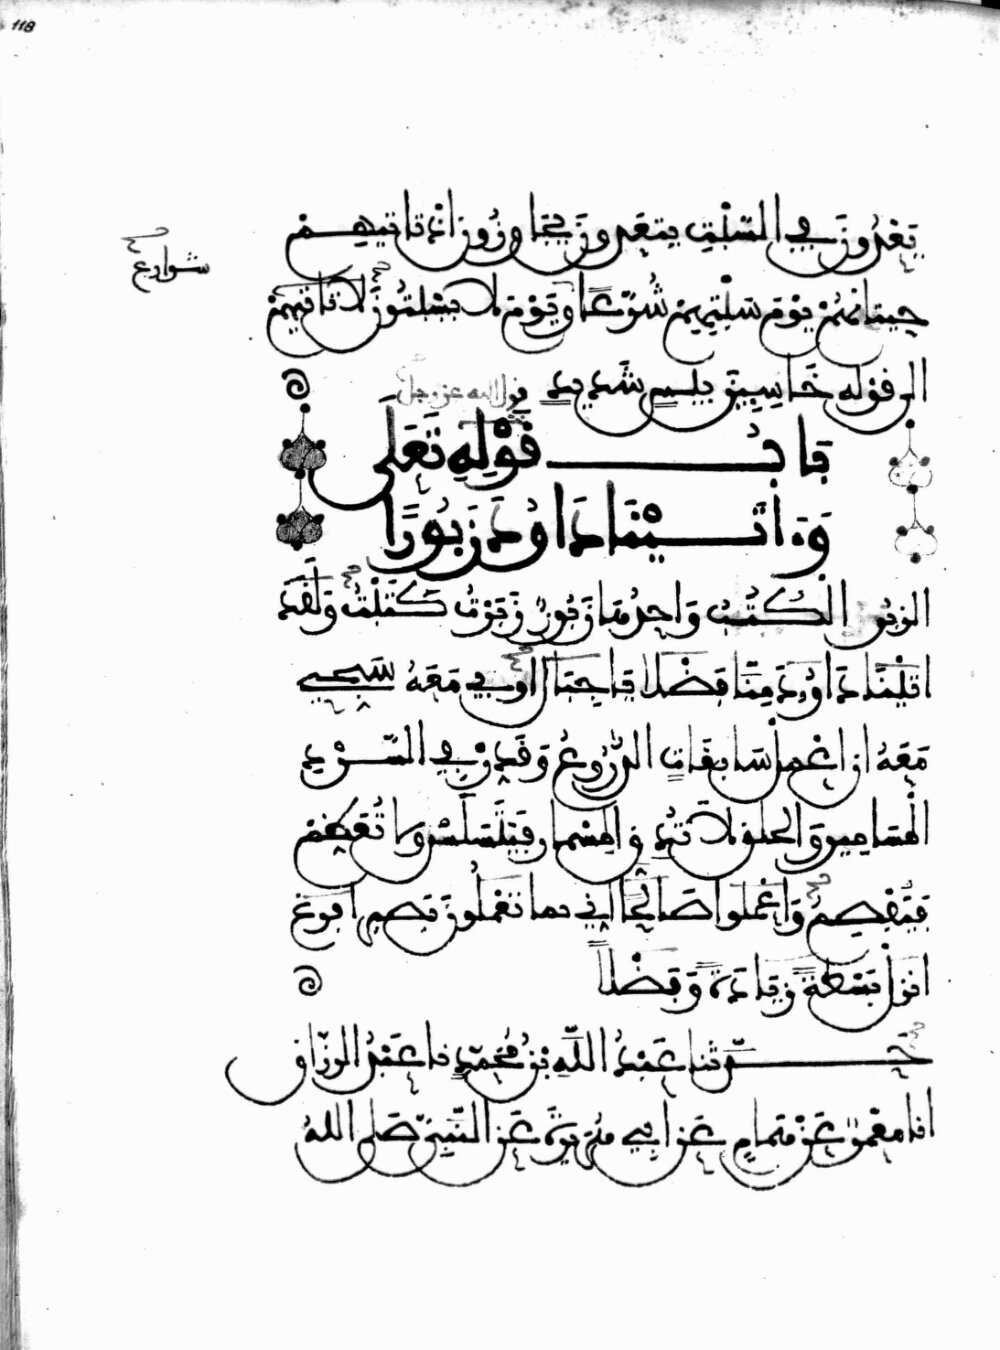 118
يَعْدُونَ في السَّبْتِ يتعدون يجاوزون إذ تاتيهم
شوارع
حيتانهم يوم سبتهم شُرَّعًا ويوم لا يسبتون لا تاتيهم
الى قوله خاسين بيس شديد
قول الله عز وجل
باب قوله تعلى
وءاتينا داود زبورا
الزبر الكتب واحدها زبور زبرت كتبت ولقد
اتينا داود منا فضلا يا جبال اوبي معه سبحي
معه ان اعمل سابغات الدروع وقدر في السرد
المسامير والحلق لا تدق المسمار فيتسلسل ولا تعظم
فيفصم واعملوا صالحا اني بما تعملون بصير افرغ
انزل بسطة زيادة وفضلا
حدثنا عبد الله بن محمد نا عبد الرزاق
انا معمر عن همام عن ابي هريرة عن النبي صلى الله